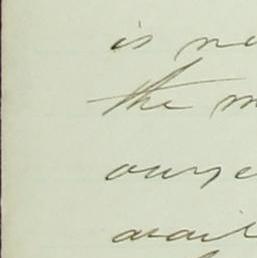 is ne
the m
ourse
avail